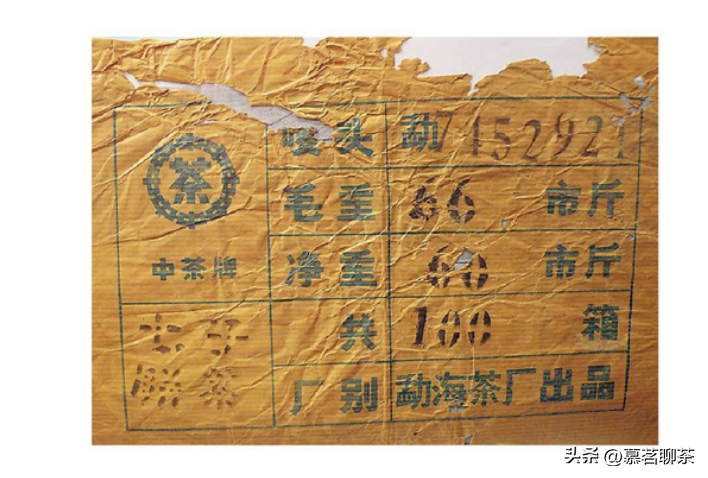 茶
中茶牌
七子
餅茶
唛头 勐7452921
毛重 66 市斤
净重 60 市斤
共 100 箱
厂别 勐海茶厂出品
头条 @慕茗聊茶